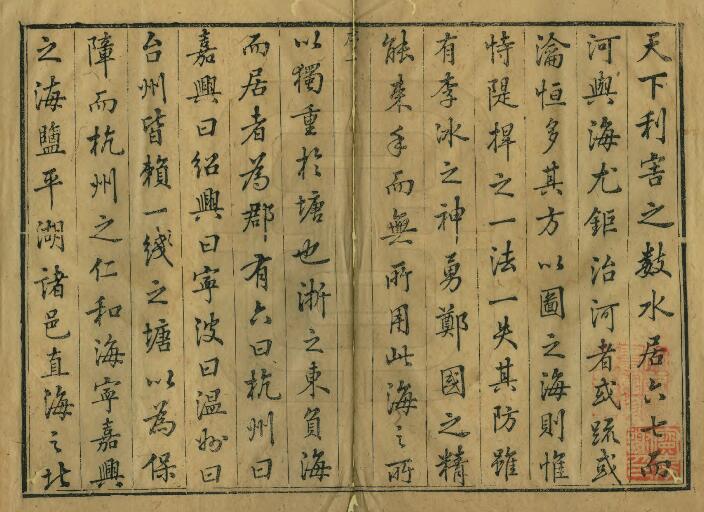 天下利害之數水居六七而
河與海尤鉅治河者或疏或
瀹恒多其方以圖之海則惟
恃隄捍之一法一失其防雖
有李冰之神勇鄭國之精
能束手而無所用此海之所
以獨重於塘也浙之東負海
而居者為郡有六曰杭州曰
嘉興曰紹興曰寧波曰温州曰
台州皆賴一綫之塘以為保
障而杭州之仁和海寧嘉興
之海鹽平湖諸邑直海之北